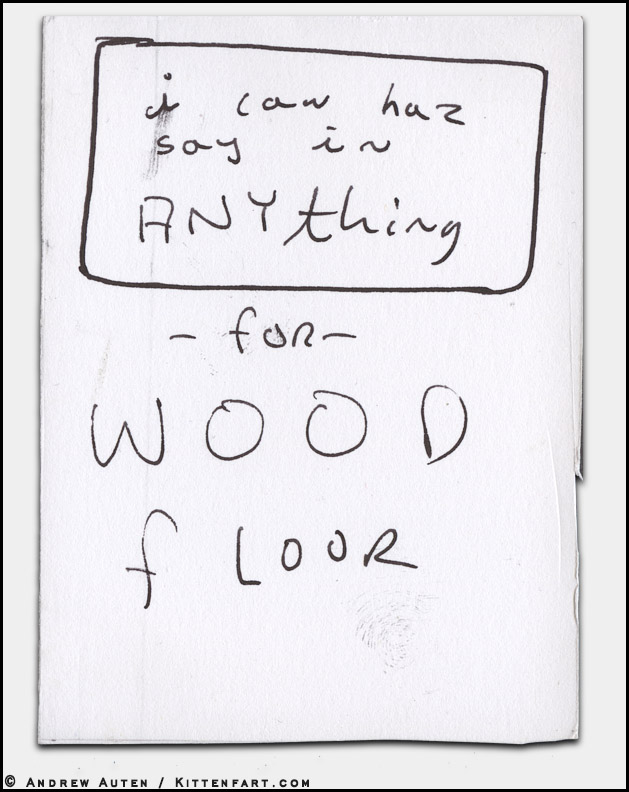 i can haz
say in
ANYthing
- for -
WOOD
fLOOR
© ANDREW AUTEN / KITTENFART.COM